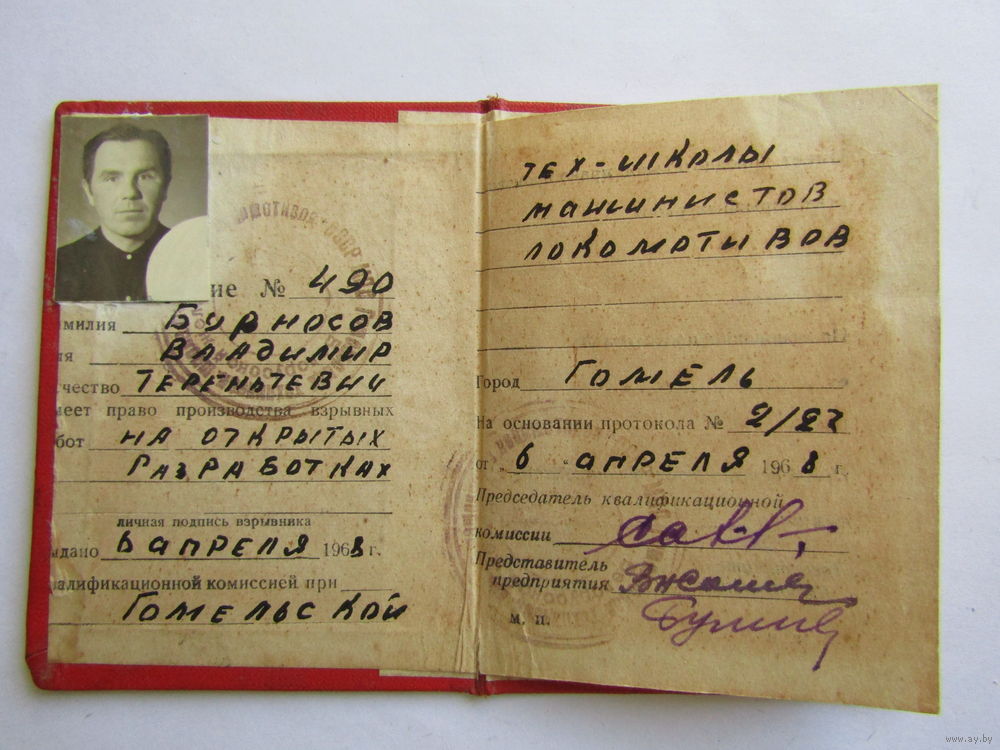 ие № 490
амилия Бурносов
я Владимир
чество Терентьевич
меет право производства взрывных
бот на открытых
разработках
личная подпись взрывника
ыдано 6 апреля 1968 г.
валификационной комиссией при
Гомельской
тех-школы
машинистов
локомотивов
Город Гомель
На основании протокола № 2/27
от „6“ апреля 1968 г.
Председатель квалификационной
комиссии
Представитель
предприятия
м. п.
www.ay.by